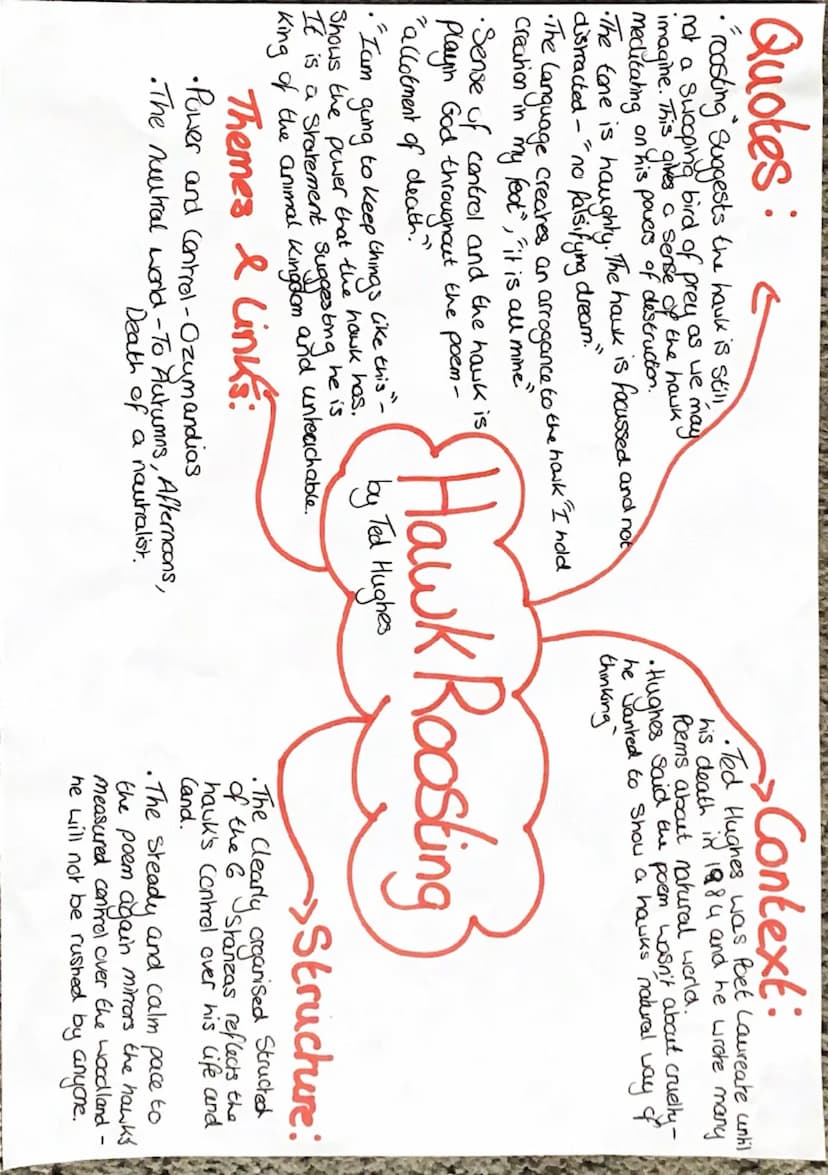 Quotes:
• "roosting" suggests the hawk is still,
not a swooping bird of prey as we may
imagine. This gives a sense of the hawk
meditating on his powers of destruction.
• The tone is haughty. The hawk is focussed and not
distracted - "no falsifying dream."
• The language creates an arrogance to the hawk "I hold
creation in my foot", "it is all mine"
• Sense of control and the hawk is
playin God throughout the poem -
"allotment of death."
• "I am going to keep things like this" -
shows the power that the hawk has.
It is a statement suggesting he is
king of the animal kingdom and unteachable.
Themes & Links:
• Power and Control - Ozymandias
• The nautral world - To Autumns, Afternoons,
Death of a nautralist.
Hawk Roosting
by Ted Hughes
Context:
• Ted Hughes was Poet Laureate until
his death in 1984 and he wrote many
Poems about natural world.
• Hughes said the poem wasn't about cruelty -
he wanted to show a hawks natural way of
thinking
Structure:
• The Clearly organised Structed
of the 6 Stanzas reflects the
hawk's control over his life and
land.
• The steady and calm pace to
the poem again mirrors the hawks
measured control over the woodland -
he will not be rushed by anyone.